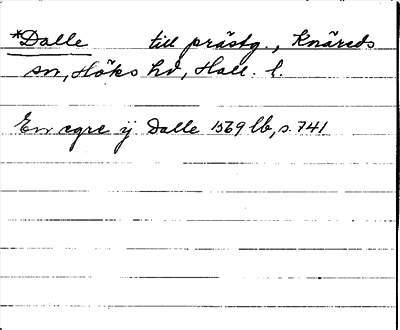 *Dalle till prästg., Knäreds
sn, Höks hd, Hall. l.
En egre ÿ Dalle 1569 lb, s. 741